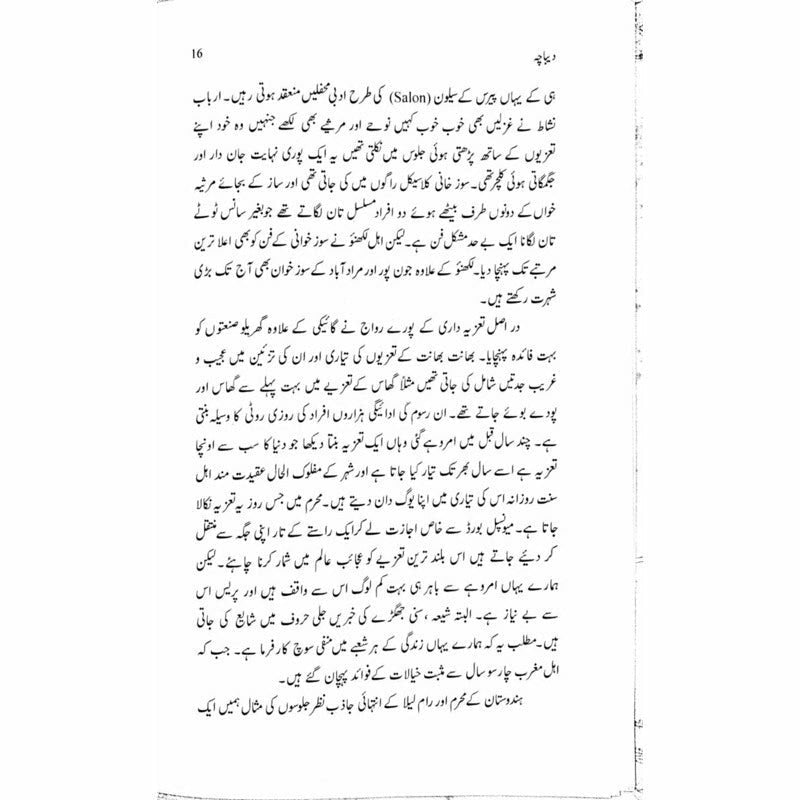 دیباچہ
16
ہی کے یہاں پیرس کے سیلون (Salon) کی طرح ادبی محفلیں منعقد ہوتی رہیں۔ ارباب
نشاط نے غزلیں بھی خوب خوب کہیں نوحے اور مرثیے بھی لکھے جنہیں وہ خود اپنے
تعزیوں کے ساتھ پڑھتی ہوئی جلوس میں نکلتی تھیں یہ ایک پوری نہایت جان دار اور
جگمگاتی ہوئی کلچر تھی۔ سوز خانی کلاسیکل راگوں میں کی جاتی تھی اور ساز کے بجائے مرثیہ
خواں کے دونوں طرف بیٹھے ہوئے دو افراد مسلسل تان لگاتے تھے جو بغیر سانس ٹوٹے
تان لگانا ایک بے حد مشکل فن ہے۔ لیکن اہل لکھنؤ نے سوز خوانی کے فن کو بھی اعلا ترین
مرتبے تک پہنچا دیا۔ لکھنؤ کے علاوہ جون پور اور مراد آباد کے سوز خوان بھی آج تک بڑی
شہرت رکھتے ہیں۔
در اصل تعزیہ داری کے پورے رواج نے گائیکی کے علاوہ گھریلو صنعتوں کو
بہت فائدہ پہنچایا۔ بھانت بھانت کے تعزیوں کی تیاری اور ان کی تزئین میں عجیب و
غریب جدتیں شامل کی جاتی تھیں مثلاً گھاس کے تعزیے میں بہت پہلے سے گھاس اور
پودے بوئے جاتے تھے۔ ان رسوم کی ادائیگی ہزاروں افراد کی روزی روٹی کا وسیلہ بنتی
ہے۔ چند سال قبل میں امروہے گئی وہاں ایک تعزیہ بنتا دیکھا جو دنیا کا سب سے اونچا
تعزیہ ہے اسے سال بھر تک تیار کیا جاتا ہے اور شہر کے مفلوک الحال عقیدت مند اہل
سنت روزانہ اس کی تیاری میں اپنا یوگ دان دیتے ہیں۔ محرم میں جس روز یہ تعزیہ نکالا
جاتا ہے۔ میونسپل بورڈ سے خاص اجازت لے کر ایک راستے کے تار اپنی جگہ سے منتقل
کر دیئے جاتے ہیں اس بلند ترین تعزیے کو عجائب عالم میں شمار کرنا چاہئے۔ لیکن
ہمارے یہاں امروہے سے باہر ہی بہت کم لوگ اس سے واقف ہیں اور پریس اس
سے بے نیاز ہے۔ البتہ شیعہ، سنی جھگڑے کی خبریں جلی حروف میں شایع کی جاتی
ہیں۔ مطلب یہ کہ ہمارے یہاں زندگی کے ہر شعبے میں منفی سوچ کار فرما ہے۔ جب کہ
اہل مغرب چار سو سال سے مثبت خیالات کے فوائد پہچان گئے ہیں۔
ہندوستان کے محرم اور رام لیلا کے انتہائی جاذب نظر جلوسوں کی مثال ہمیں ایک